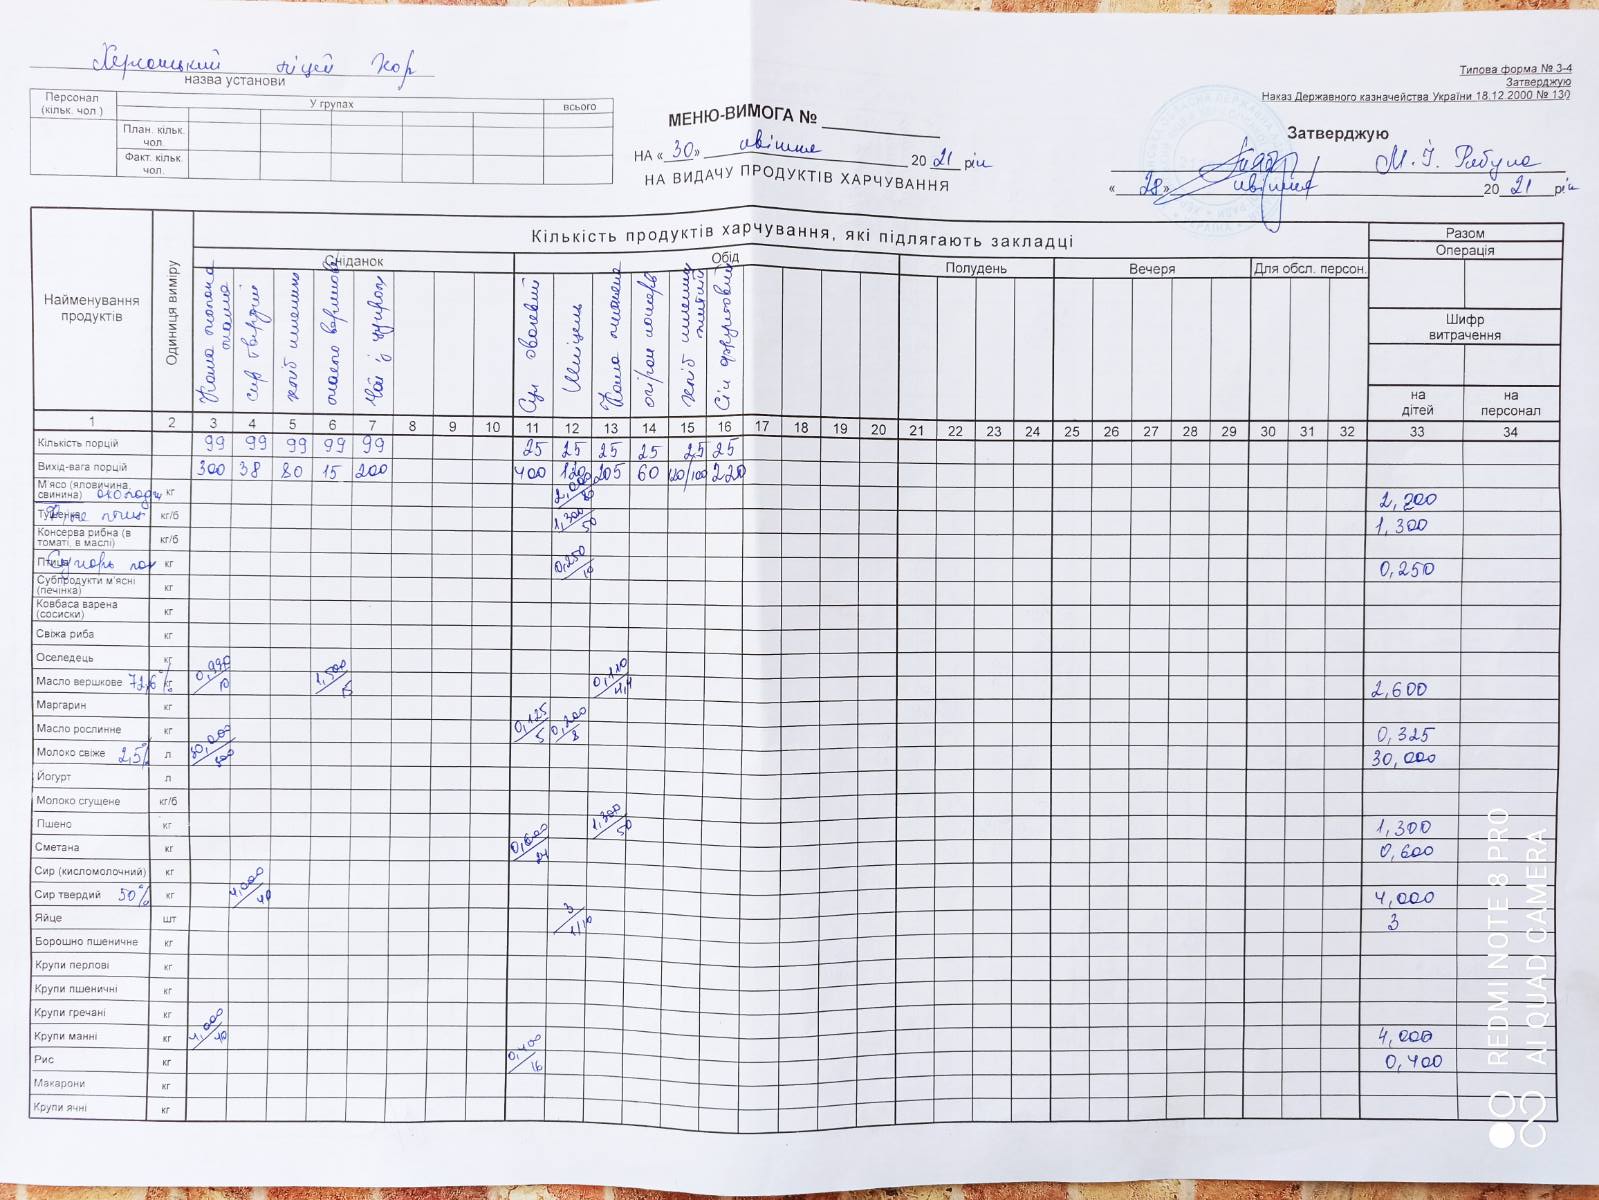 ліцей
назва установи
Типова форма № 3-4
Затверджую
Наказ Державного казначейства України 18.12.2000 № 130
Персонал (кільк. чол.) У групах всього
План. кільк. чол.
Факт. кільк. чол.
МЕНЮ-ВИМОГА №
НА «30» квітня 2021 рік
НА ВИДАЧУ ПРОДУКТІВ ХАРЧУВАННЯ
Затверджую
М. Й.
«28» квітня 2021 рік
Найменування продуктів
Одиниця виміру
Кількість продуктів харчування, які підлягають закладці
Разом
Операція
Сніданок Обід Полудень Вечеря Для обсл. персон.
Шифр витрачення
Каша молочна манна
сир твердий
хліб пшенич
масло вершкове
Чай з цукром
Суп овочевий
Шніцель
Каша пшоняна
огірок консерв
хліб пшенич житній
Сік фруктовий
на дітей на персонал
1 2 3 4 5 6 7 8 9 10 11 12 13 14 15 16 17 18 19 20 21 22 23 24 25 26 27 28 29 30 31 32 33 34
Кількість порцій 99 99 99 99 99 25 25 25 25 25 25
Вихід-вага порцій 300 38 80 15 200 400 120 205 60 120/100 220
М'ясо (яловичина, свинина) охолодж кг 2,200
Тушенка кг/б 1,300/50 1,300
Консерва рибна (в томаті, в маслі) кг/б
Птиця Сухарь пан кг 0,250/10 0,250
Субпродукти м'ясні (печінка) кг
Ковбаса варена (сосиски) кг
Свіжа риба кг
Оселедець кг
Масло вершкове 72,6% кг 0,990/10 1,500/15 0,110/4,4 2,600
Маргарин кг
Масло рослинне кг 0,125/5 0,200/8 0,325
Молоко свіже 2,5% л 30,000/300 30,000
Йогурт л
Молоко сгущене кг/б
Пшено кг 1,300/50 1,300
Сметана кг 0,600/24 0,600
Сир (кисломолочний) кг
Сир твердий 50% кг 4,000/40 4,000
Яйце шт 3/1/10 3
Борошно пшеничне кг
Крупи перлові кг
Крупи пшеничні кг
Крупи гречані кг
Крупи манні кг 4,000/40 4,000
Рис кг 0,400/16 0,400
Макарони кг
Крупи ячні кг
REDMI NOTE 8 PRO
AI QUAD CAMERA